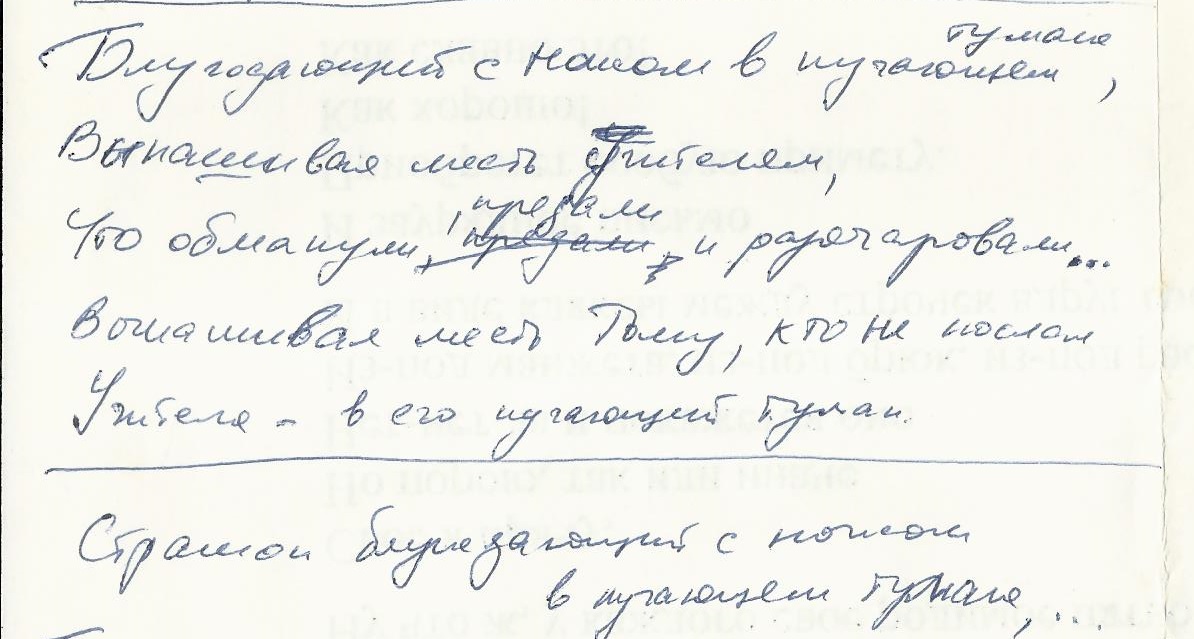 Блуждающий с ножом в пугающем тумане,
Вынашивая месть Учителям,
Что обманули, предали, и разочаровали...
Вынашивая месть Тому, кто не послал
Учителя - в его пугающий туман.
Страшон блуждающий с ножом
в пугающем тумане,...